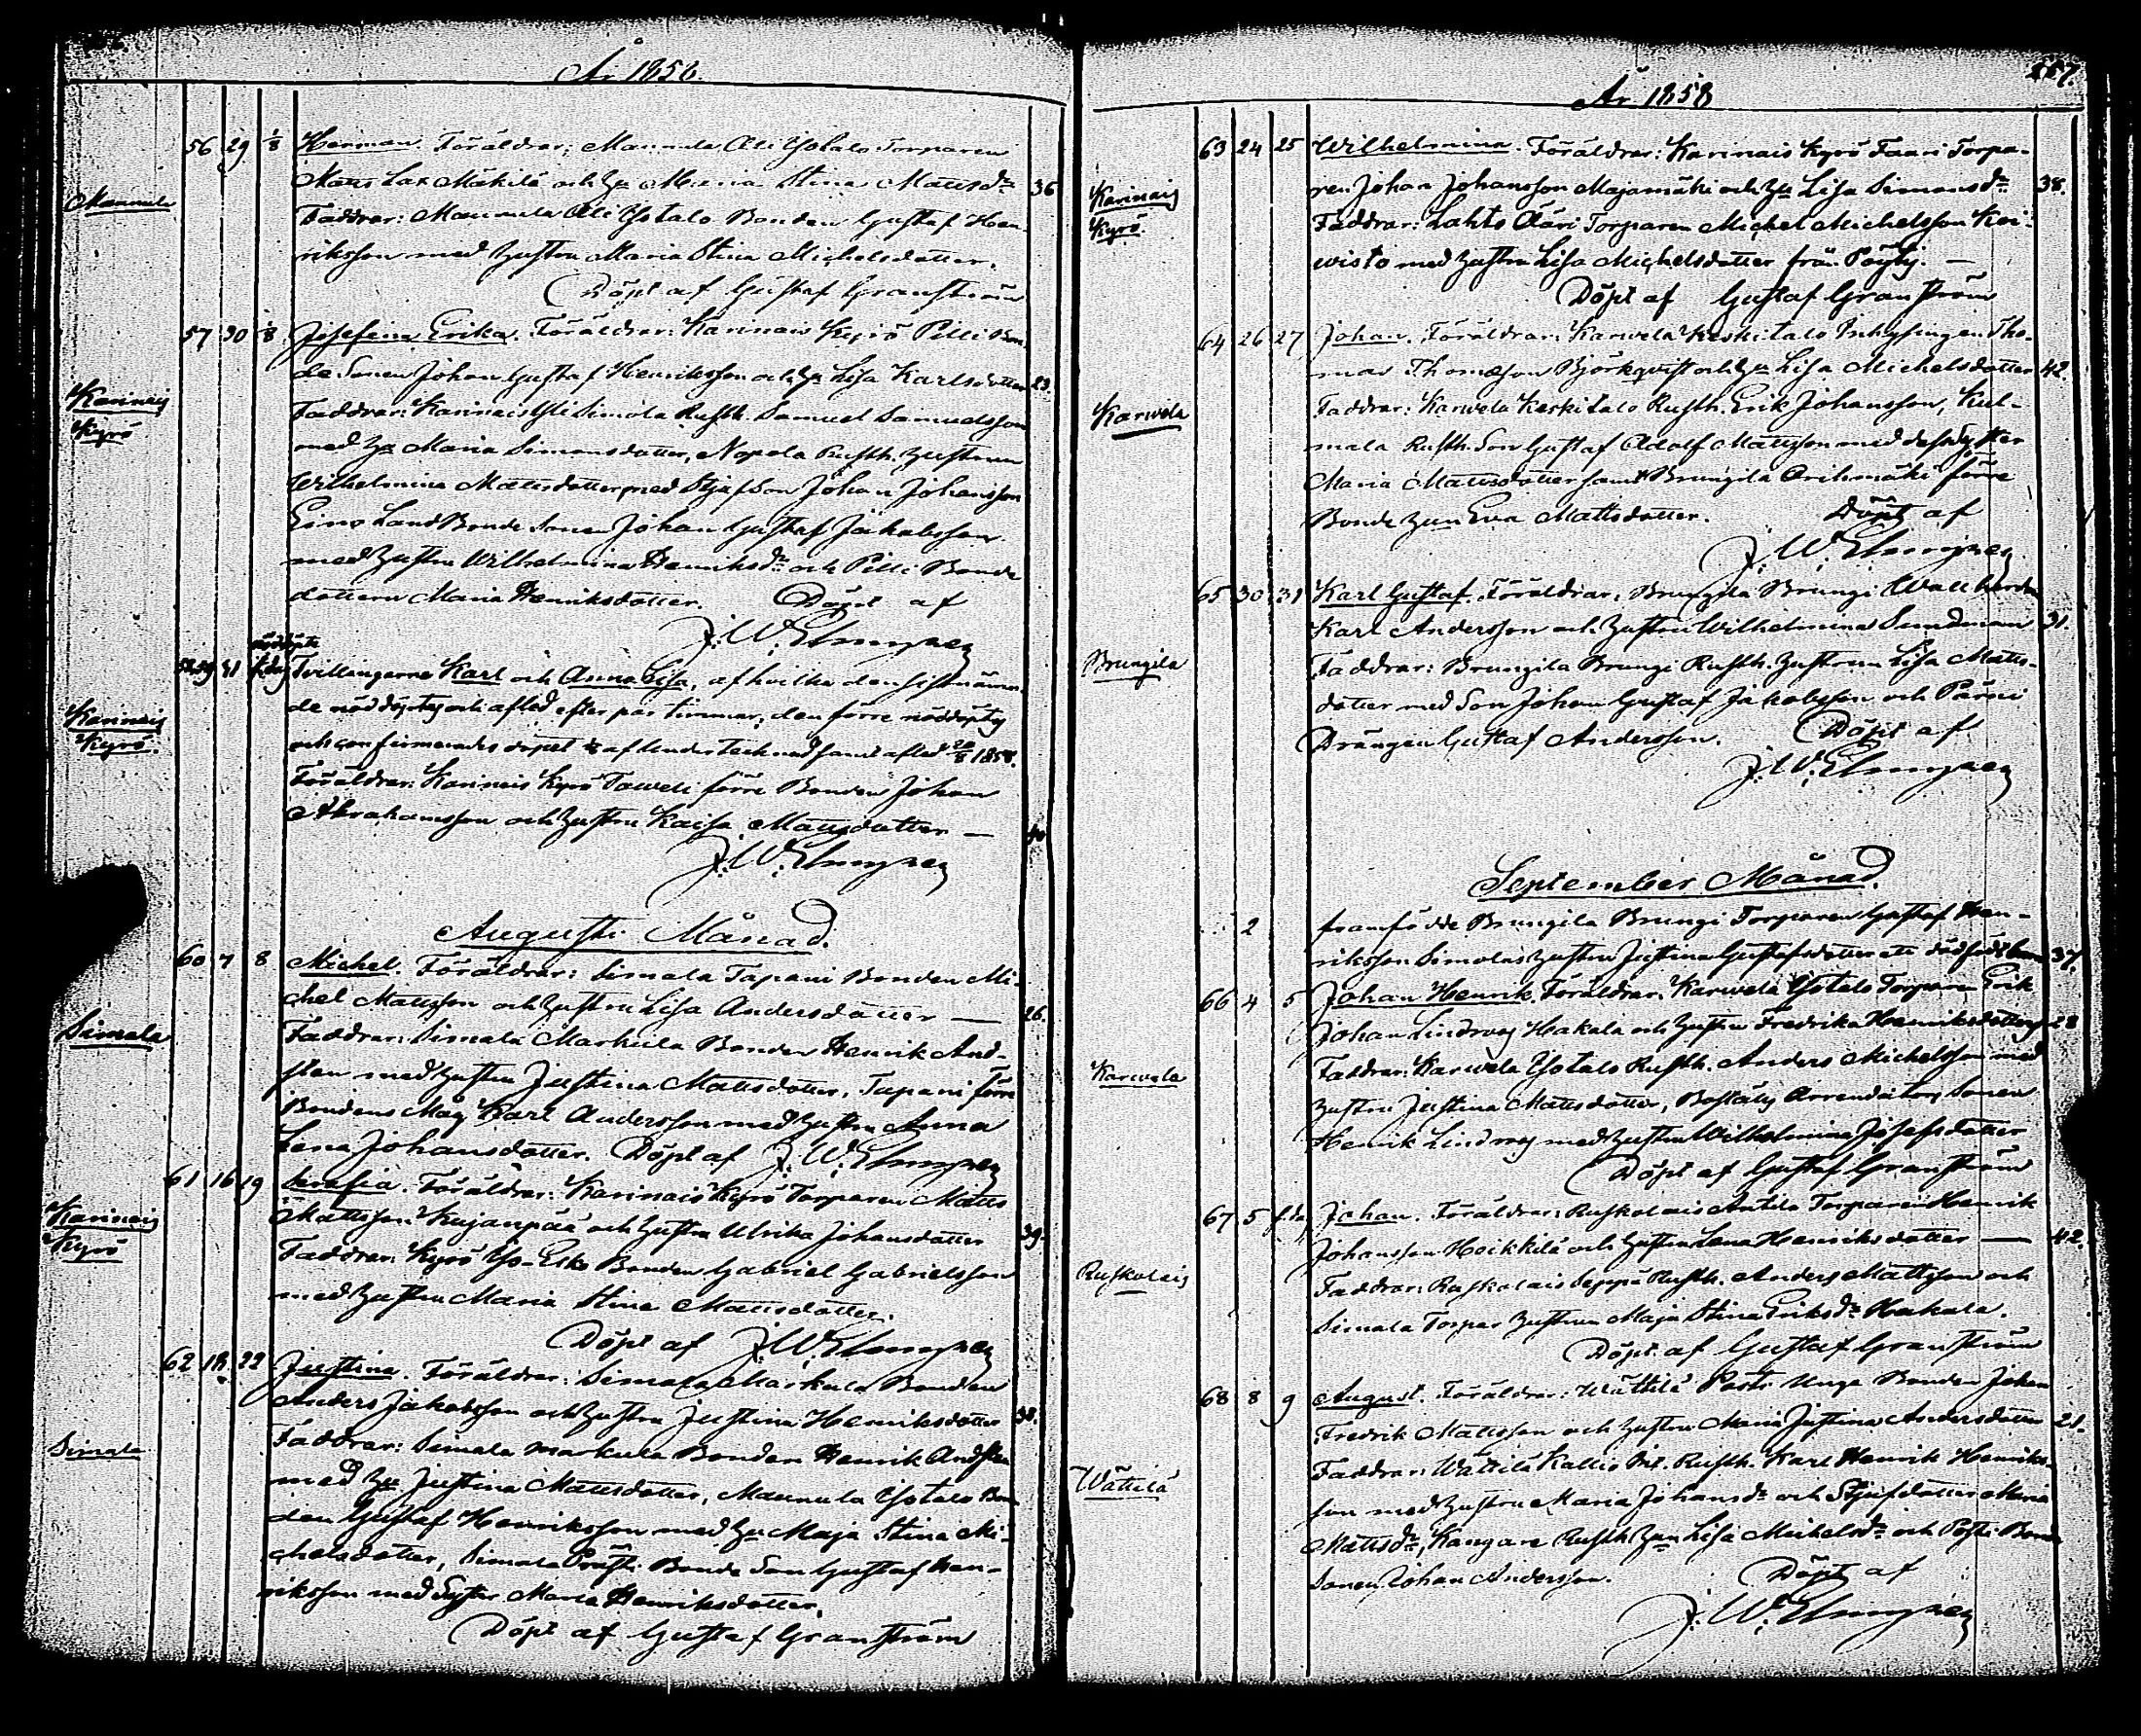 År 1858.
56 29 1/8 Herman. Föräldrar: Maunula Ali Ystalo Torparen
Matts Lax Mäkilä och Hu Maria Stina Mattsdr 36
Maunula
Faddrar: Maunula Ali Ystalo Bonden Gustaf Hen-
riksson med hustru Maria Stina Michelsdotter.
Döpt af Gustaf Granström
57 30 1/8 Josefina Erika. Föräldrar: Karinais Kyrö Pilli Bon-
de Sonen Johan Gustaf Henriksson och Hu Lisa Karlsdotter 23.
Karinais
Kyrö
Faddrar: Karinais Yli Simola Rusth. Samuel Samuelsson
med Hu Maria Simonsdotter, Nopola Rusth. hustrun
Wilhelmina Mattsdotter med Stjufson Johan Johansson
Eino Land Bonde Sonen Johan Gustaf Jakobsson
med hustru Wilhelmina Henriksdr och Pilli Bonde
dottern Maria Henriksdotter. Döpt af
J. W. Elmgren
nöddöpte
58.59 31 f.dag Tvillingarne Karl och Anna Lisa, af hvilka den sistnämn-
de nöddöptes och afled efter par timmar, den förre nöddöptes
Karinais
Kyrö.
och confirmerades döpet af undertecknad samt afled 1858.
Föräldrar: Karinais Kyrö Taweli förre Bonden Johan
Abrahamsson och hustru Kaisa Mattsdotter — 40
J. W. Elmgren
Augusti Månad.
60 7 8 Michel. Föräldrar: Simala Tapani Bonden Mi-
chel Mattsson och hustru Lisa Andersdotter — 26.
Simala
Faddrar: Simala Markula Bonden Henrik And-
sten med hustru Justina Mattsdotter, Tapani förre
Bondens Måg Karl Andersson med hustru Anna
Lena Johansdotter. Döpt af J. W. Elmgren
61 16 19 Serafia. Föräldrar: Karinais Kyrö Torparen Matts
Mattsson Kujanpää och hustru Ulrika Johansdotter 39.
Karinais
Kyrö
Faddrar: Kyrö Yso-Eska Bonden Gabriel Gabrielsson
med hustru Maria Stina Mattsdotter.
Döpt af J. W. Elmgren
62 18. 22 Justina. Föräldrar: Simala Markula Bonden
Anders Jakobsson och hustru Justina Henriksdotter 38.
Simala
Faddrar: Simala Markula Bonden Henrik Andsten
med Hu Justina Mattsdotter, Maunula Ystalo Bon-
den Gustaf Henriksson med Hu Maja Stina Mi-
chelsdotter, Simala Prusti Bonde Son Gustaf Hen-
riksson med Syster Maria Henriksdotter.
Döpt af Gustaf Granström
227.
År 1858
63 24 25 Wilhelmina. Föräldrar: Karinais Kyrö Faari Torpa-
ren Johan Johansson Majamäki och Hu Lisa Simonsdr 38.
Karinais
Kyrö.
Faddrar: Lahto Ääri Torparen Michel Michelsson Koi-
wisto med hustru Lisa Michelsdotter från Pöytis. —
Döpt af Gustaf Granström
64 26 27 Johan. Föräldrar: Karwela Keskitalo Inhysingen Tho-
mas Thomasson Björkqwist och Hu Lisa Michelsdotter 42.
Karwela
Faddrar: Karwela Keskitalo Rusth. Erik Johansson, Kul-
mala Rusth. Son Gustaf Adolf Mattsson med dess Syster
Maria Mattsdotter samt Brungila Orihmäki förre
Bonde Hun Eva Mattsdotter. Döpt af
J. W. Elmgren
65 30 31 Karl Gustaf. Föräldrar: Brungila Brungi Wallherden
Karl Andersson och hustru Wilhelmina Sundman 31.
Brungila
Faddrar: Brungila Brungi Rusth. hustrun Lisa Matts-
dotter med Son Johan Gustaf Jakobsson och Pärni
Drängen Gustaf Andersson. Döpt af
J. W. Elmgren
September Månad.
2 framfödde Brungila Brungi Torparen Gustaf Hen-
riksson Simolas hustru Justina Gustafsdotter ett dödfödt barn 37.
66 4 5 Johan Henrik. Föräldrar: Karwela Ystalo Torparen Erik
Johan Lindroos Hakala och hustru Fredrika Henriksdotter 28
Karwela
Faddrar: Karwela Ystalo Rusth. Anders Michelsson med
hustru Justina Mattsdotter, Boställs Arrendators Sonen
Henrik Lindroos med hustru Wilhelmina Josefsdotter
Döpt af Gustaf Granström
67 5 f.da Johan. Föräldrar: Ruskolais Antila Torparen Henrik
Johansson Hoikkilä och hustru Lena Henriksdotter — 42.
Ruskolais
Faddrar: Ruskolais Seppä Rusth. Anders Mattsson och
Simala Torpar hustrun Maja Stina Eriksdr Hakala.
Döpt af Gustaf Granström
68 8 9 August. Föräldrar: Wättilä Posti Unga Bonden Johan
Fredrik Mattsson och hustru Maria Justina Andersdotter 21.
Wättilä
Faddrar: Wättilä Kallio Rusth. Karl Henrik Henriks-
son med hustru Maria Johansdr och Stjufdotter Maria
Mattsdr, Kangare Rusth. Hun Lisa Michelsdr och Posti Bonde
Sonen Johan Andersson. Döpt af
J. W. Elmgren